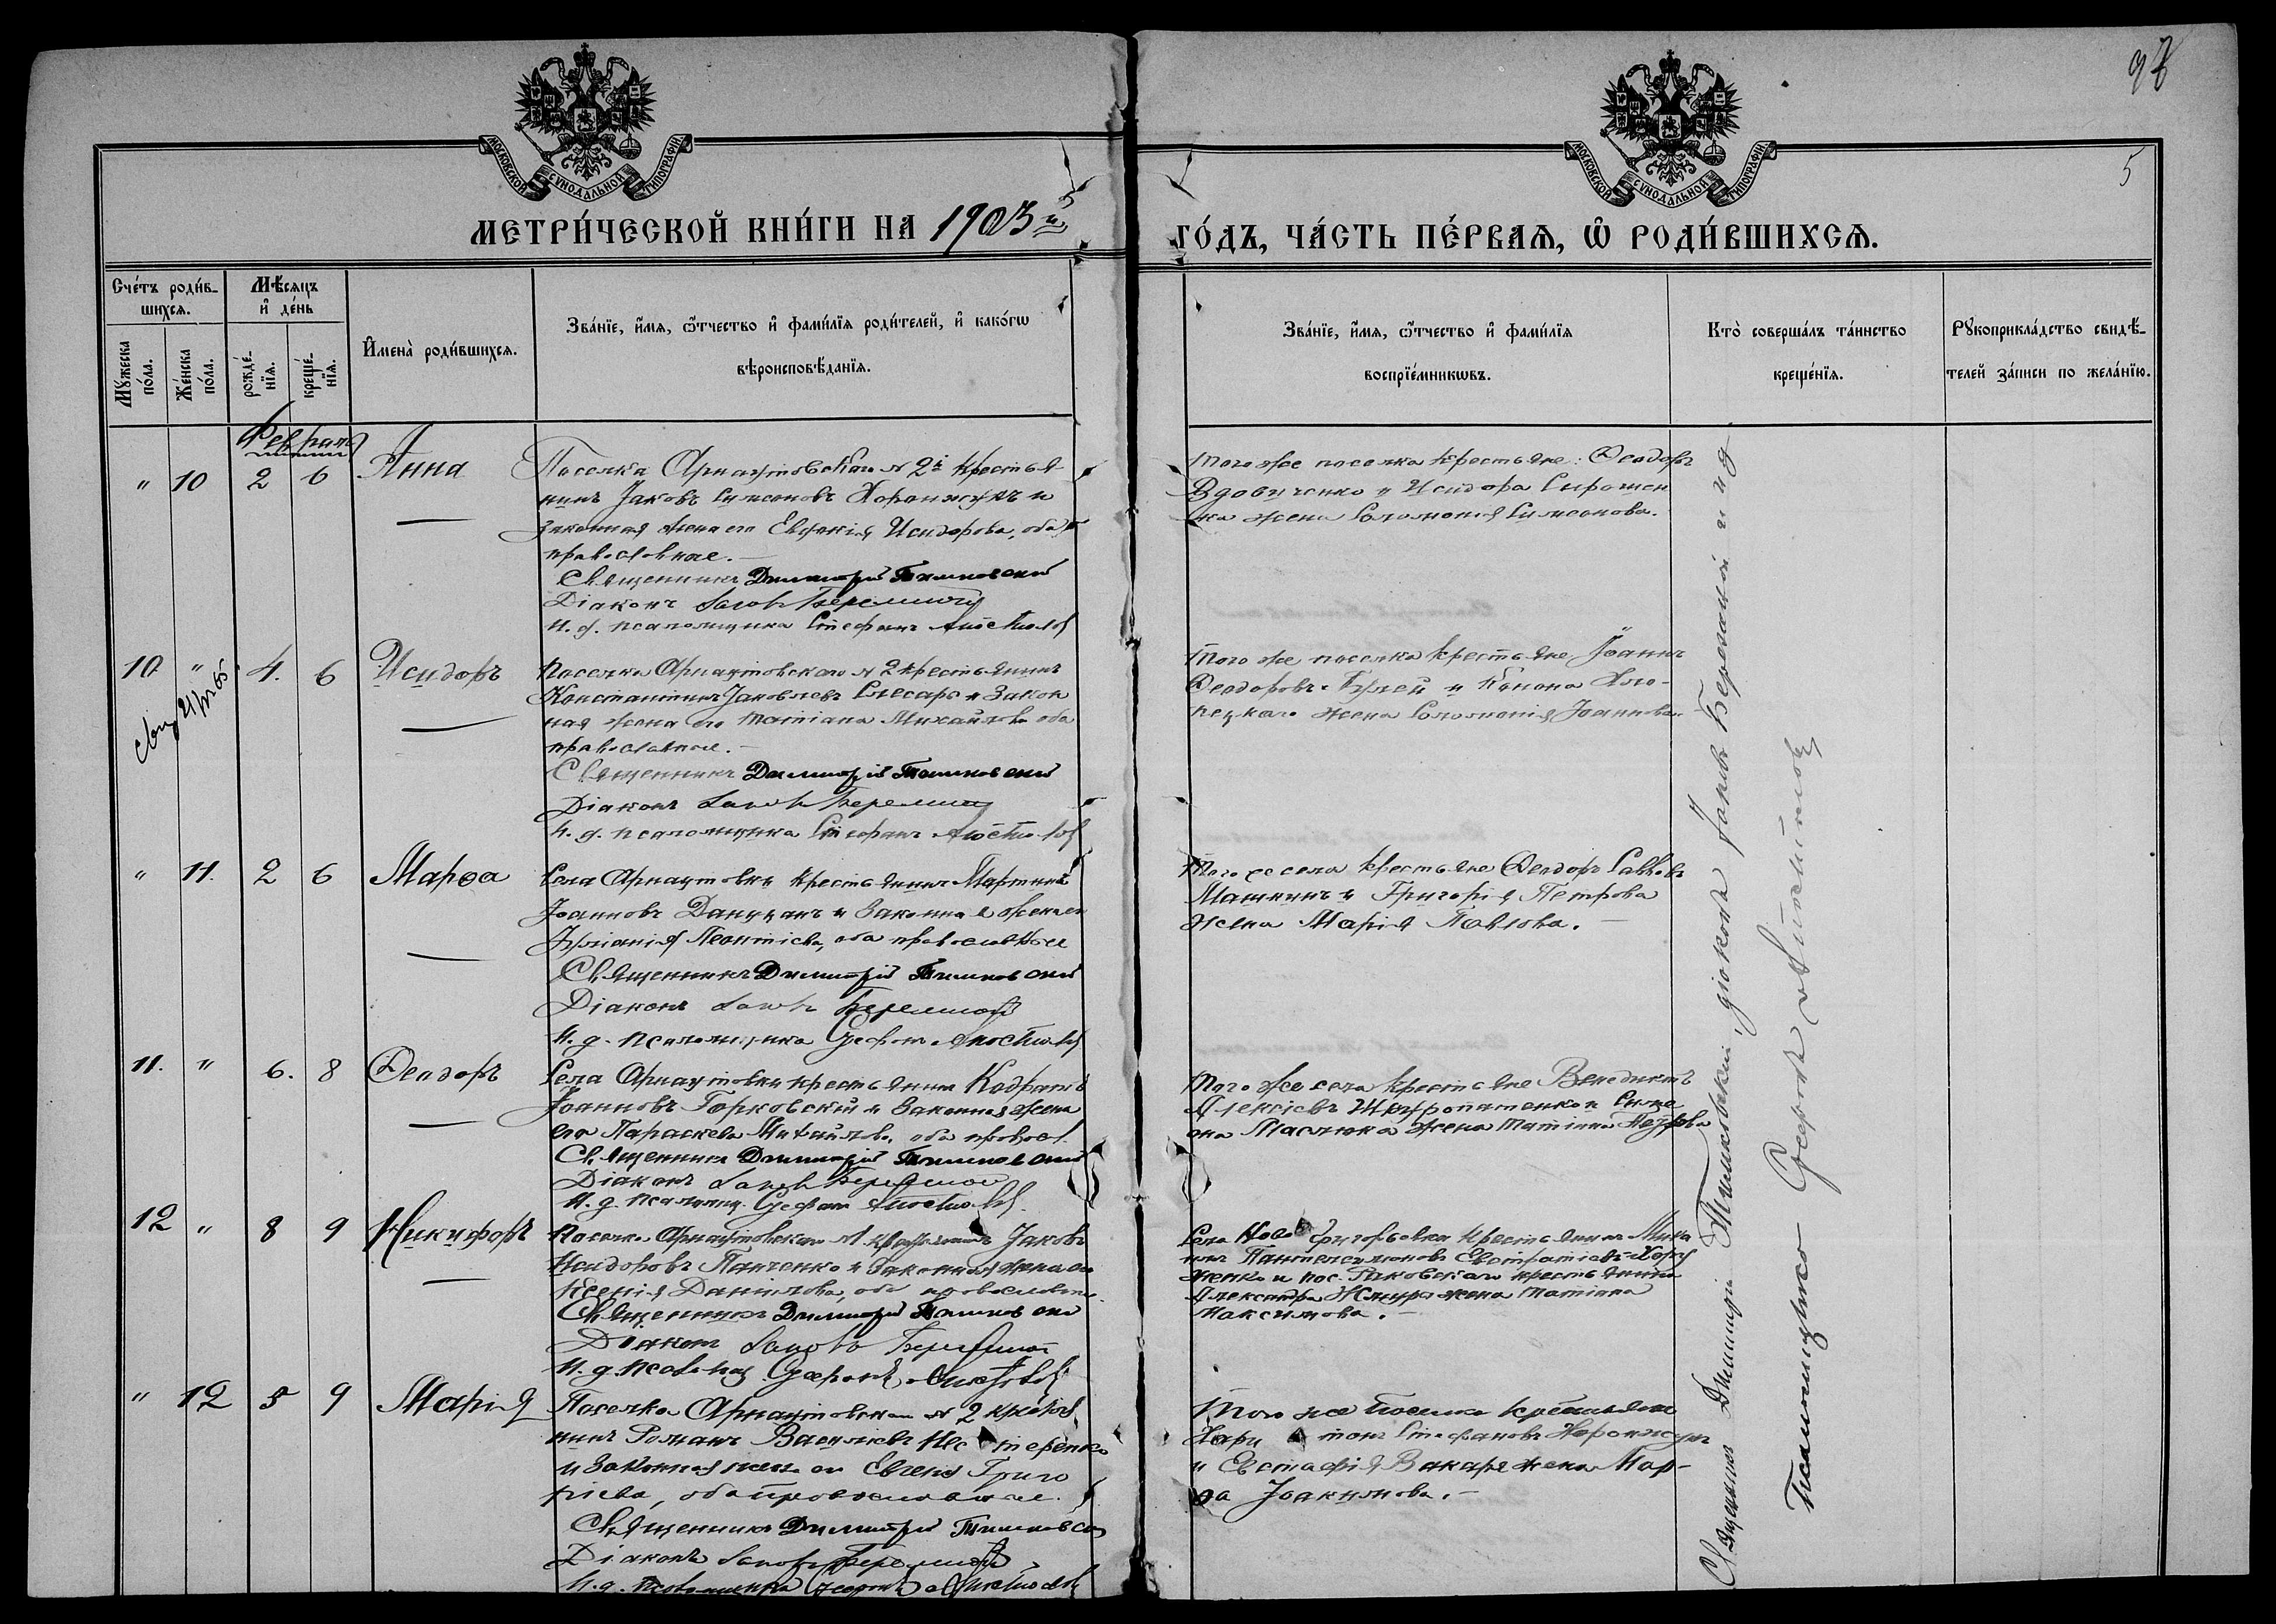 97
5
МОСКОВСКОЙ СѴНОДАЛЬНОЙ ТИПОГРАФІИ.
МОСКОВСКОЙ СѴНОДАЛЬНОЙ ТИПОГРАФІИ.
МЕТРИ́ЧЕСКОЙ КНИ́ГИ НА 1903й
ГО́ДЪ, ЧА́СТЬ ПЕ́РВАѦ, Ѡ҆ РОДИ́ВШИХСѦ.
Сче́тъ роди́в-
шихсѧ.
Мꙋ́жеска по́ла.
Же́нска по́ла.
Мѣ́сѧцъ
и҆ де́нь
рожде́-
нїѧ.
креще́-
нїѧ.
И҆мена̀ роди́вшихсѧ.
Зва́нїе, и҆́мѧ, ѻ҆́тчество и҆ фами́лїѧ роди́телей, и҆ како́гѡ
вѣроисповѣ́данїѧ.
Зва́нїе, и҆́мѧ, ѻ҆́тчество и҆ фами́лїѧ
воспрїе́мникѡвъ.
Кто̀ соверша́лъ та́инство
креще́нїѧ.
Рꙋкоприкла́дство свидѣ́-
телей за́писи по жела́нїю.
Февраль
" 10 2 6 Анна
Поселка Арнаутовскаго № 2й крестья-
нинъ Іаковъ Симеоновъ Хоронжукъ и
законная жена его Евдокія Исидорова, оба
православные.
Священникъ Димитрій Тимковскій
Діаконъ Іаковъ Бережной
И. д. псаломщика Стефанъ
Того же поселка крестьяне: Ѳеодоръ
Вдовиченко и Исидора Сирошен
ка жена Соломонія Симеонова.
10 " 4. 6 Исидоръ
Поселка Арнаутовскаго № 2 крестьянинъ
Константинъ Іаковлевъ Слесарь и закон
ная жена его Татіана Михайлова оба
православные.
Священникъ Димитрій Тимковскій
Діаконъ Іаковъ Бережной
И. д. псаломщика Стефанъ
Того же поселка крестьяне Іоаннъ
Ѳеодоровъ и Конона
жена Соломонія Іоаннова.
" 11. 2 6 Марѳа
Села Арнаутовки крестьянинъ Мартинъ
Іоанновъ и законная жена его
Іуліанія Леонтіева, оба православные
Священникъ Димитрій Тимковскій
Діаконъ Іаковъ Бережной
И. д. псаломщика
Того же села крестьяне Ѳеодоръ Савковъ
Машкинъ и Григорія Петрова
жена Марія Павлова.
11. " 6. 8 Ѳеодоръ
Села Арнаутовки крестьянинъ Кодратъ
Іоанновъ Горковскій и законная жена
его Параскева Михайлова, оба правосл.
Священникъ Димитрій Тимковскій
Діаконъ Іаковъ Бережной
И. д. псаломщ.
Того же села крестьяне Венедиктъ
Алексіевъ и Симе
она Маслюка жена Татіана Петрова
12 " 8 9 Никифоръ
Поселка Арнаутовскаго № 1 крестьянинъ Іаковъ
Исидоровъ Панченко и законная жена его
Ксенія Даніилова, оба православные.
Священникъ Димитрій Тимковскій
Діаконъ Іаковъ Бережной
И. д. псаломщ.
Села Ново Григорьевки крестьянинъ
Пантелеимоновъ Евстратіевъ
и пос. Раковскаго крестьянина
Александра жена Татіана
Максимова.
" 12 5 9 Марія
Поселка Арнаутовскаго № 2 крестья
нинъ Романъ Василіевъ Нестеренко
и законная жена его Евгенія Григо
ріева, оба православные.
Священникъ Димитрій Тимковскій
Діаконъ Іаковъ Бережной
И. д. псаломщика
Того же поселка крестьяне
Харитонъ Стефановъ Хоронжукъ
и Евстафія Вакаря жена Мар-
ѳа Іоакимова.
Священникъ Димитрій Тимковскій, діаконъ Іаковъ Бережной и и. д.
Псаломщика